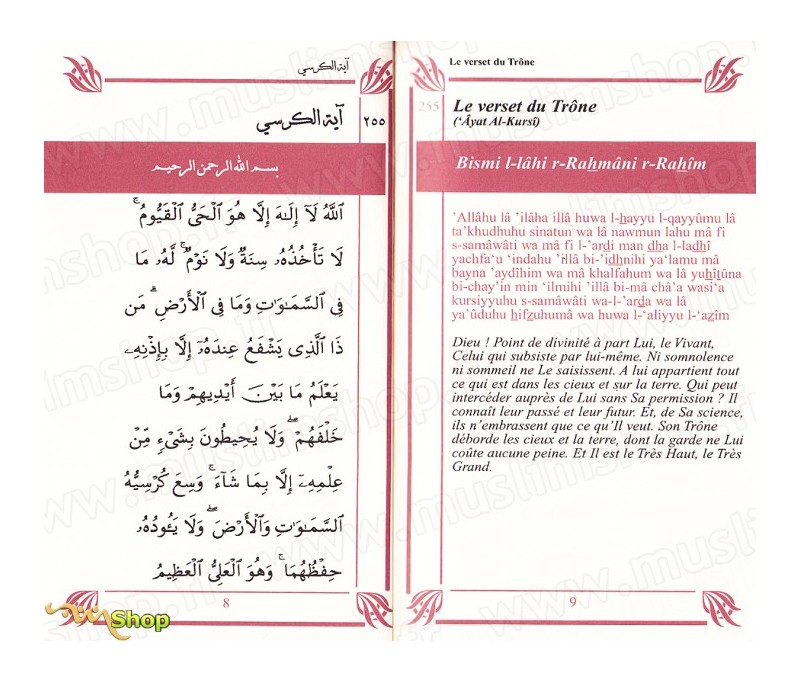 آية الكرسي
٢٥٥
آية الكرسي
بسم الله الرحمن الرحيم
ٱللَّهُ لَآ إِلَـٰهَ إِلَّا هُوَ ٱلْحَىُّ ٱلْقَيُّومُ ۚ
لَا تَأْخُذُهُۥ سِنَةٌ وَلَا نَوْمٌ ۚ لَّهُۥ مَا
فِى ٱلسَّمَـٰوَٰتِ وَمَا فِى ٱلْأَرْضِ ۗ مَن
ذَا ٱلَّذِى يَشْفَعُ عِندَهُۥٓ إِلَّا بِإِذْنِهِۦ
يَعْلَمُ مَا بَيْنَ أَيْدِيهِمْ وَمَا
خَلْفَهُمْ ۖ وَلَا يُحِيطُونَ بِشَىْءٍ مِّنْ
عِلْمِهِۦٓ إِلَّا بِمَا شَآءَ ۚ وَسِعَ كُرْسِيُّهُ
ٱلسَّمَـٰوَٰتِ وَٱلْأَرْضَ ۖ وَلَا يَـُٔودُهُۥ
حِفْظُهُمَا ۚ وَهُوَ ٱلْعَلِىُّ ٱلْعَظِيمُ
8
Shop
Le verset du Trône
255
Le verset du Trône
(‘Âyat Al-Kursî)
Bismi l-lâhi r-Rahmâni r-Rahîm
’Allâhu lâ ’ilâha illâ huwa l-hayyu l-qayyûmu lâ
ta’khudhuhu sinatun wa lâ nawmun lahu mâ fi
s-samâwâti wa mâ fi l-’ardi man dha l-ladhî
yachfa‘u ‘indahu ’illâ bi-’idhnihi ya‘lamu mâ
bayna ’aydîhim wa mâ khalfahum wa lâ yuhîtûna
bi-chay’in min ‘ilmihi ’illâ bi-mâ châ’a wasi‘a
kursiyyuhu s-samâwâti wa-l-’arda wa lâ
ya’ûduhu hifzuhumâ wa huwa l-‘aliyyu l-‘azîm
Dieu ! Point de divinité à part Lui, le Vivant,
Celui qui subsiste par lui-même. Ni somnolence
ni sommeil ne Le saisissent. A lui appartient tout
ce qui est dans les cieux et sur la terre. Qui peut
intercéder auprès de Lui sans Sa permission ? Il
connaît leur passé et leur futur. Et, de Sa science,
ils n’embrassent que ce qu’Il veut. Son Trône
déborde les cieux et la terre, dont la garde ne Lui
coûte aucune peine. Et Il est le Très Haut, le Très
Grand.
9